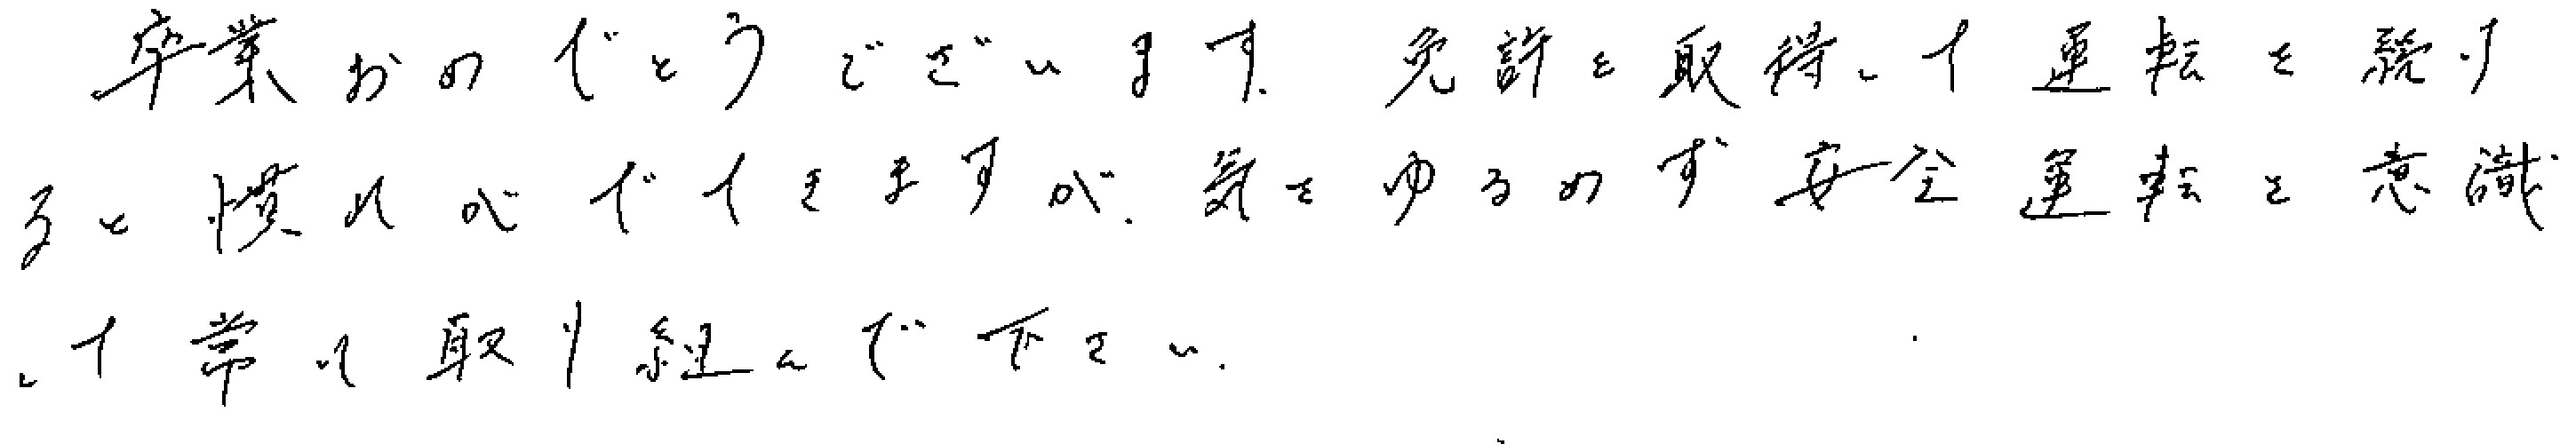 卒業おめでとうございます。免許を取得して運転を続け
ると慣れがでてきますが、気をゆるめず安全運転を意識
して常に取り組んで下さい。